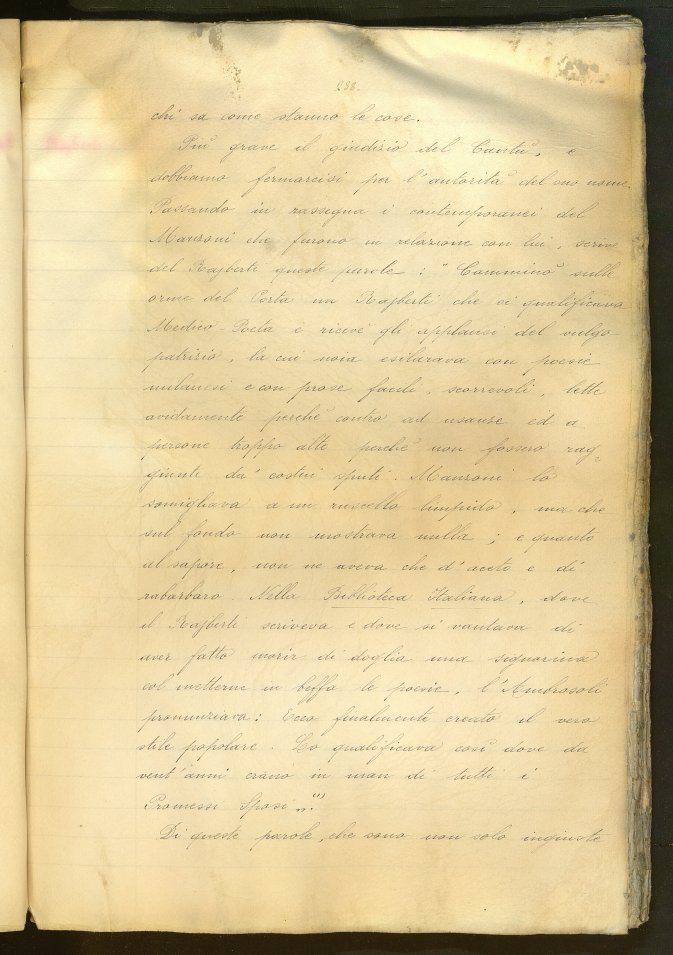 238.
chi sa come stanno le cose.
Più grave il giudizio del Cantù, e
dobbiamo fermarcisi per l'autorità del suo nome.
Passando in rassegna i contemporanei del
Manzoni che furono in relazione con lui, scrive
del Rajberti queste parole: "Camminò sulle
orme del Porta un Rajberti che si qualificava
Medico-Poeta e ricevé gli applausi del vulgo
patrizio, la cui noia esilarava con poesie
milanesi e con prose facili, scorrevoli, lette
avidamente perchè contro ad usanze ed a
persone troppo alte perchè non fossero rag-
giunte da' costui sputi. Manzoni lo
somigliava a un ruscello limpido, ma che
sul fondo non mostrava nulla; e quanto
al sapore, non ne aveva che d'aceto e di
rabarbaro. Nella Biblioteca Italiana, dove
il Rajberti scriveva e dove si vantava di
aver fatto morir di doglia una signorina
col metterne in beffa le poesie, l'Ambrosoli
pronunziava: Ecco finalmente creato il vero
stile popolare. Lo qualificava così dove da
vent'anni erano in man di tutti i
Promessi Sposi„. (1)
Di queste parole, che sono non solo ingiuste